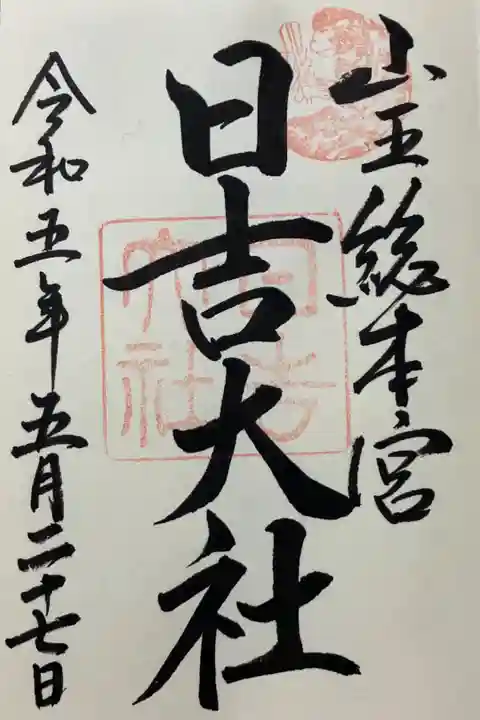 山王総本宮
日吉大社
日吉大社
令和五年五月二十七日